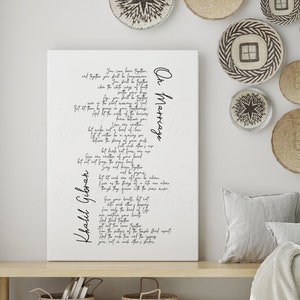 On Marriage
You were born together,
and together you shall be forevermore.
You shall be together
when the white wings of death
scatter your days.
Aye, you shall be together
even in the silent memory of God.
But let there be spaces in your togetherness,
And let the winds of the heavens
dance between you.
Love one another,
but make not a bond of love:
Let it rather be a moving sea
between the shores of your souls.
Fill each other's cup
but drink not from one cup.
Give one another of your bread
but eat not from the same loaf.
Sing and dance together
and be joyous,
but let each one of you be alone,
Even as the strings of a lute are alone
though they quiver with the same music.
Give your hearts, but not
into each other's keeping.
For only the hand of Life
can contain your hearts.
And stand together
yet not too near together:
For the pillars of the temple stand apart,
And the oak tree and the cypress
grow not in each other's shadow.
Khalil Gibran